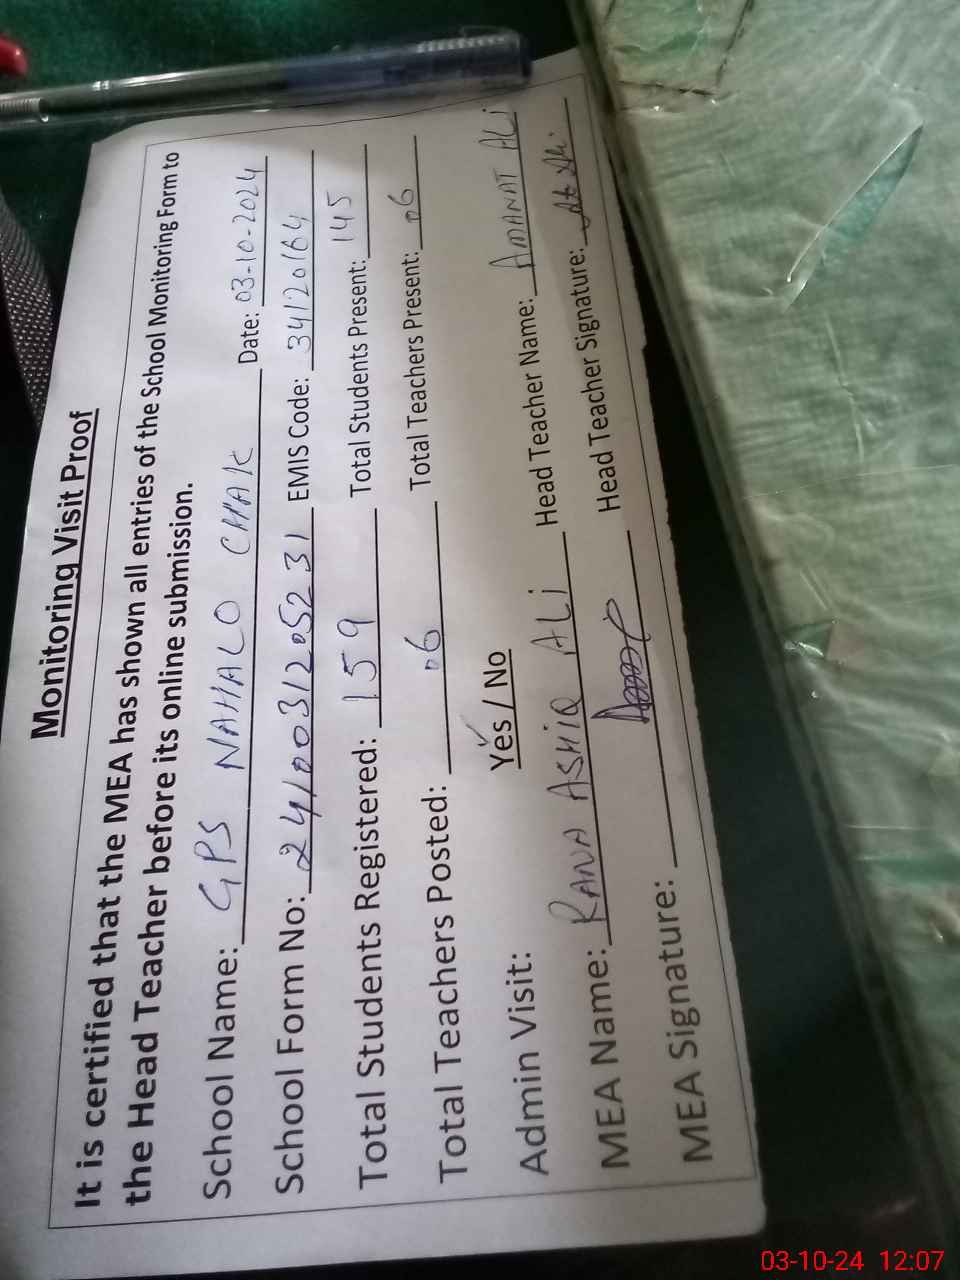 Monitoring Visit Proof
It is certified that the MEA has shown all entries of the School Monitoring Form to
the Head Teacher before its online submission.
School Name: GPS NAHALO CHAK Date: 03-10-2024
School Form No: 24100312052 31 EMIS Code: 34120164
Total Students Registered: 159 Total Students Present: 145
Total Teachers Posted: 06 Total Teachers Present: 06
Admin Visit: Yes / No
MEA Name: RANA ASHIQ ALi Head Teacher Name: AMANAT ALi
MEA Signature: Head Teacher Signature:
03-10-24 12:07